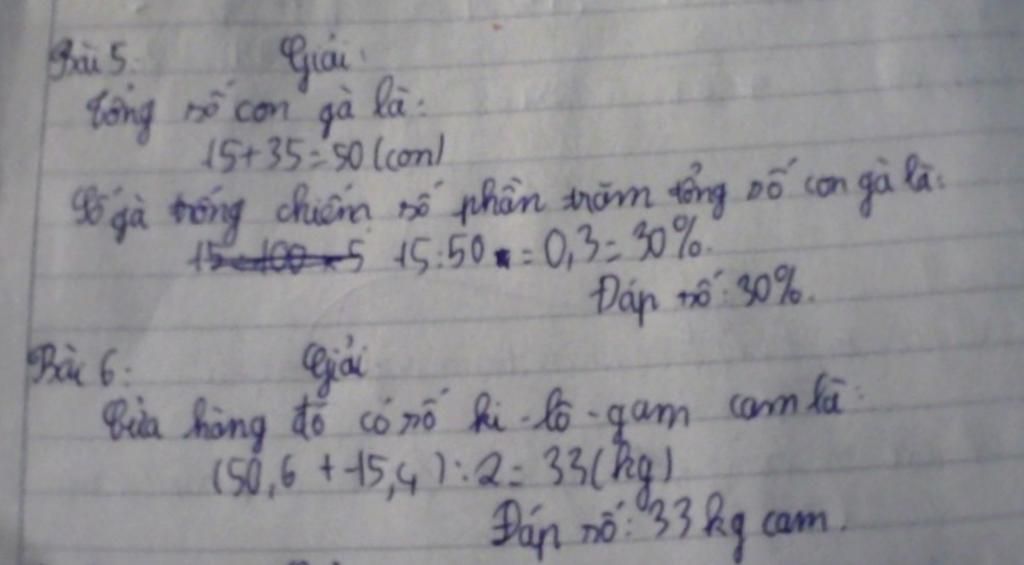 Bài 5: Giải:
Tổng số con gà là:
15+35=50 (con)
Số gà trống chiếm số phần trăm tổng số con gà là:
15:50 = 0,3 = 30%.
Đáp số: 30%.
Bài 6: Giải
Cửa hàng đó có số ki-lô-gam cam là:
(50,6 + 15,4) : 2 = 33 (kg)
Đáp số: 33 kg cam.